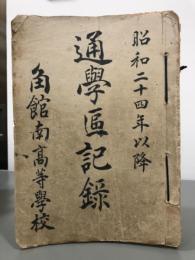 昭和二十四年以降
通學區記録
角館南高等學校